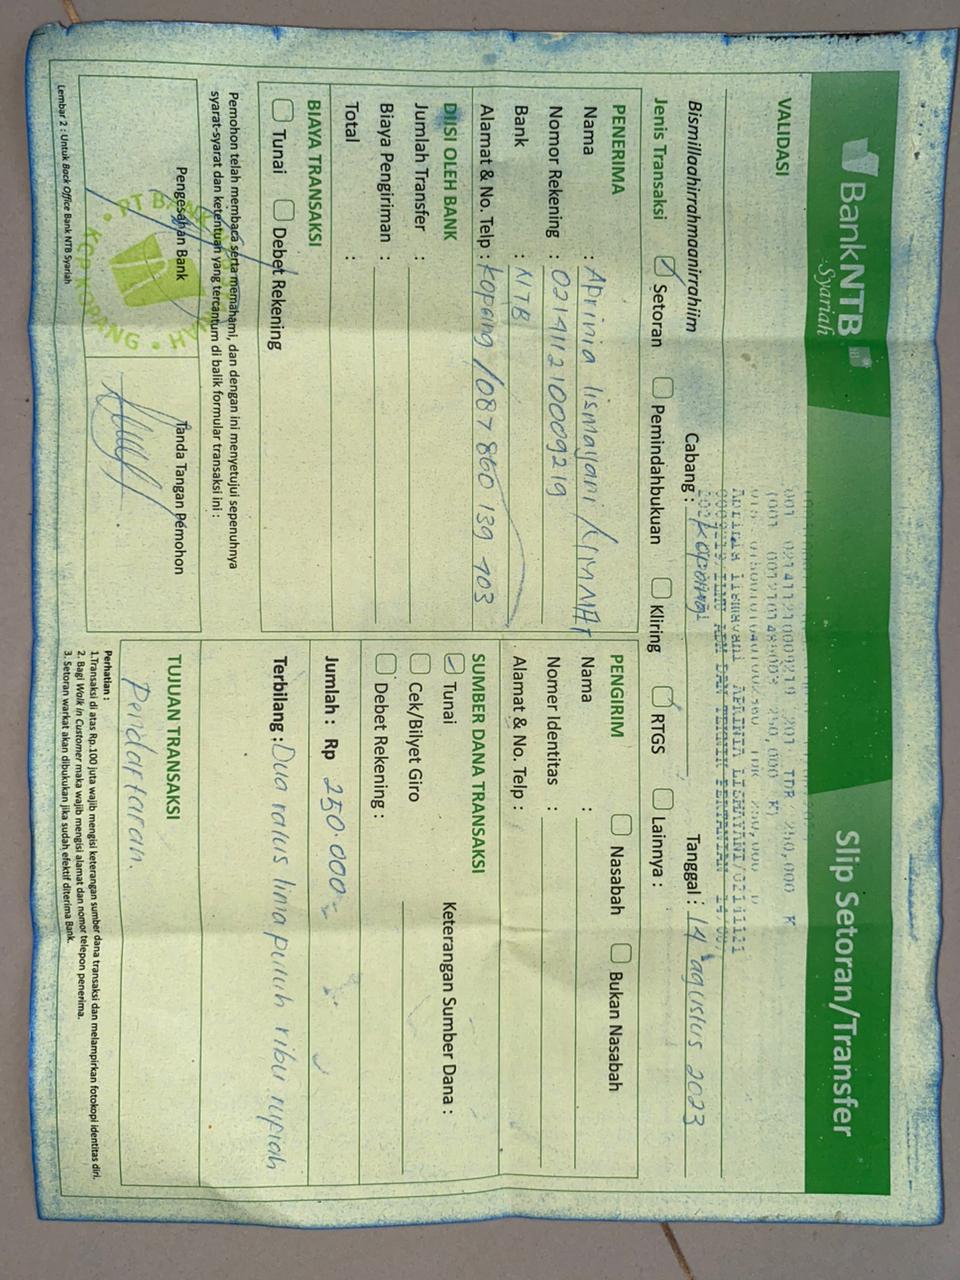 BankNTB
Syariah
Slip Setoran/Transfer
VALIDASI
001 0214112100009219 201 TDR 250,000 K
Aprinia lismayani APRINIA LISMAYANI/02141121
Bismillaahirrahmaanirrahiim
Cabang : Kopang
Tanggal : 14 agustus 2023
Jenis Transaksi
Setoran
Pemindahbukuan
Kliring
RTGS
Lainnya :
PENERIMA
Nama : Aprinia lismayani /UMMAT
Nomor Rekening : 0214112100009219
Bank : NTB
Alamat & No. Telp : Kopang /087 860 139 403
PENGIRIM
Nasabah
Bukan Nasabah
Nama :
Nomer Identitas :
Alamat & No. Telp :
DIISI OLEH BANK
Jumlah Transfer :
Biaya Pengiriman :
Total :
SUMBER DANA TRANSAKSI
Tunai
Keterangan Sumber Dana :
Cek/Bilyet Giro
Debet Rekening :
BIAYA TRANSAKSI
Tunai
Debet Rekening
Jumlah : Rp 250.000-
Terbilang : Dua ratus lima puluh ribu rupiah
Pemohon telah membaca serta memahami, dan dengan ini menyetujui sepenuhnya
syarat-syarat dan ketentuan yang tercantum di balik formular transaksi ini :
Pengesahan Bank
Tanda Tangan Pemohon
PT BANK
KCP KOPANG
TUJUAN TRANSAKSI
Pendaftaran.
Perhatian :
1.Transaksi di atas Rp.100 juta wajib mengisi keterangan sumber dana transaksi dan melampirkan fotokopi identitas diri.
2. Bagi Walk in Customer maka wajib mengisi alamat dan nomor telepon penerima.
3. Setoran warkat akan dibukukan jika sudah efektif diterima Bank.
Lembar 2 : Untuk Back Office Bank NTB Syariah